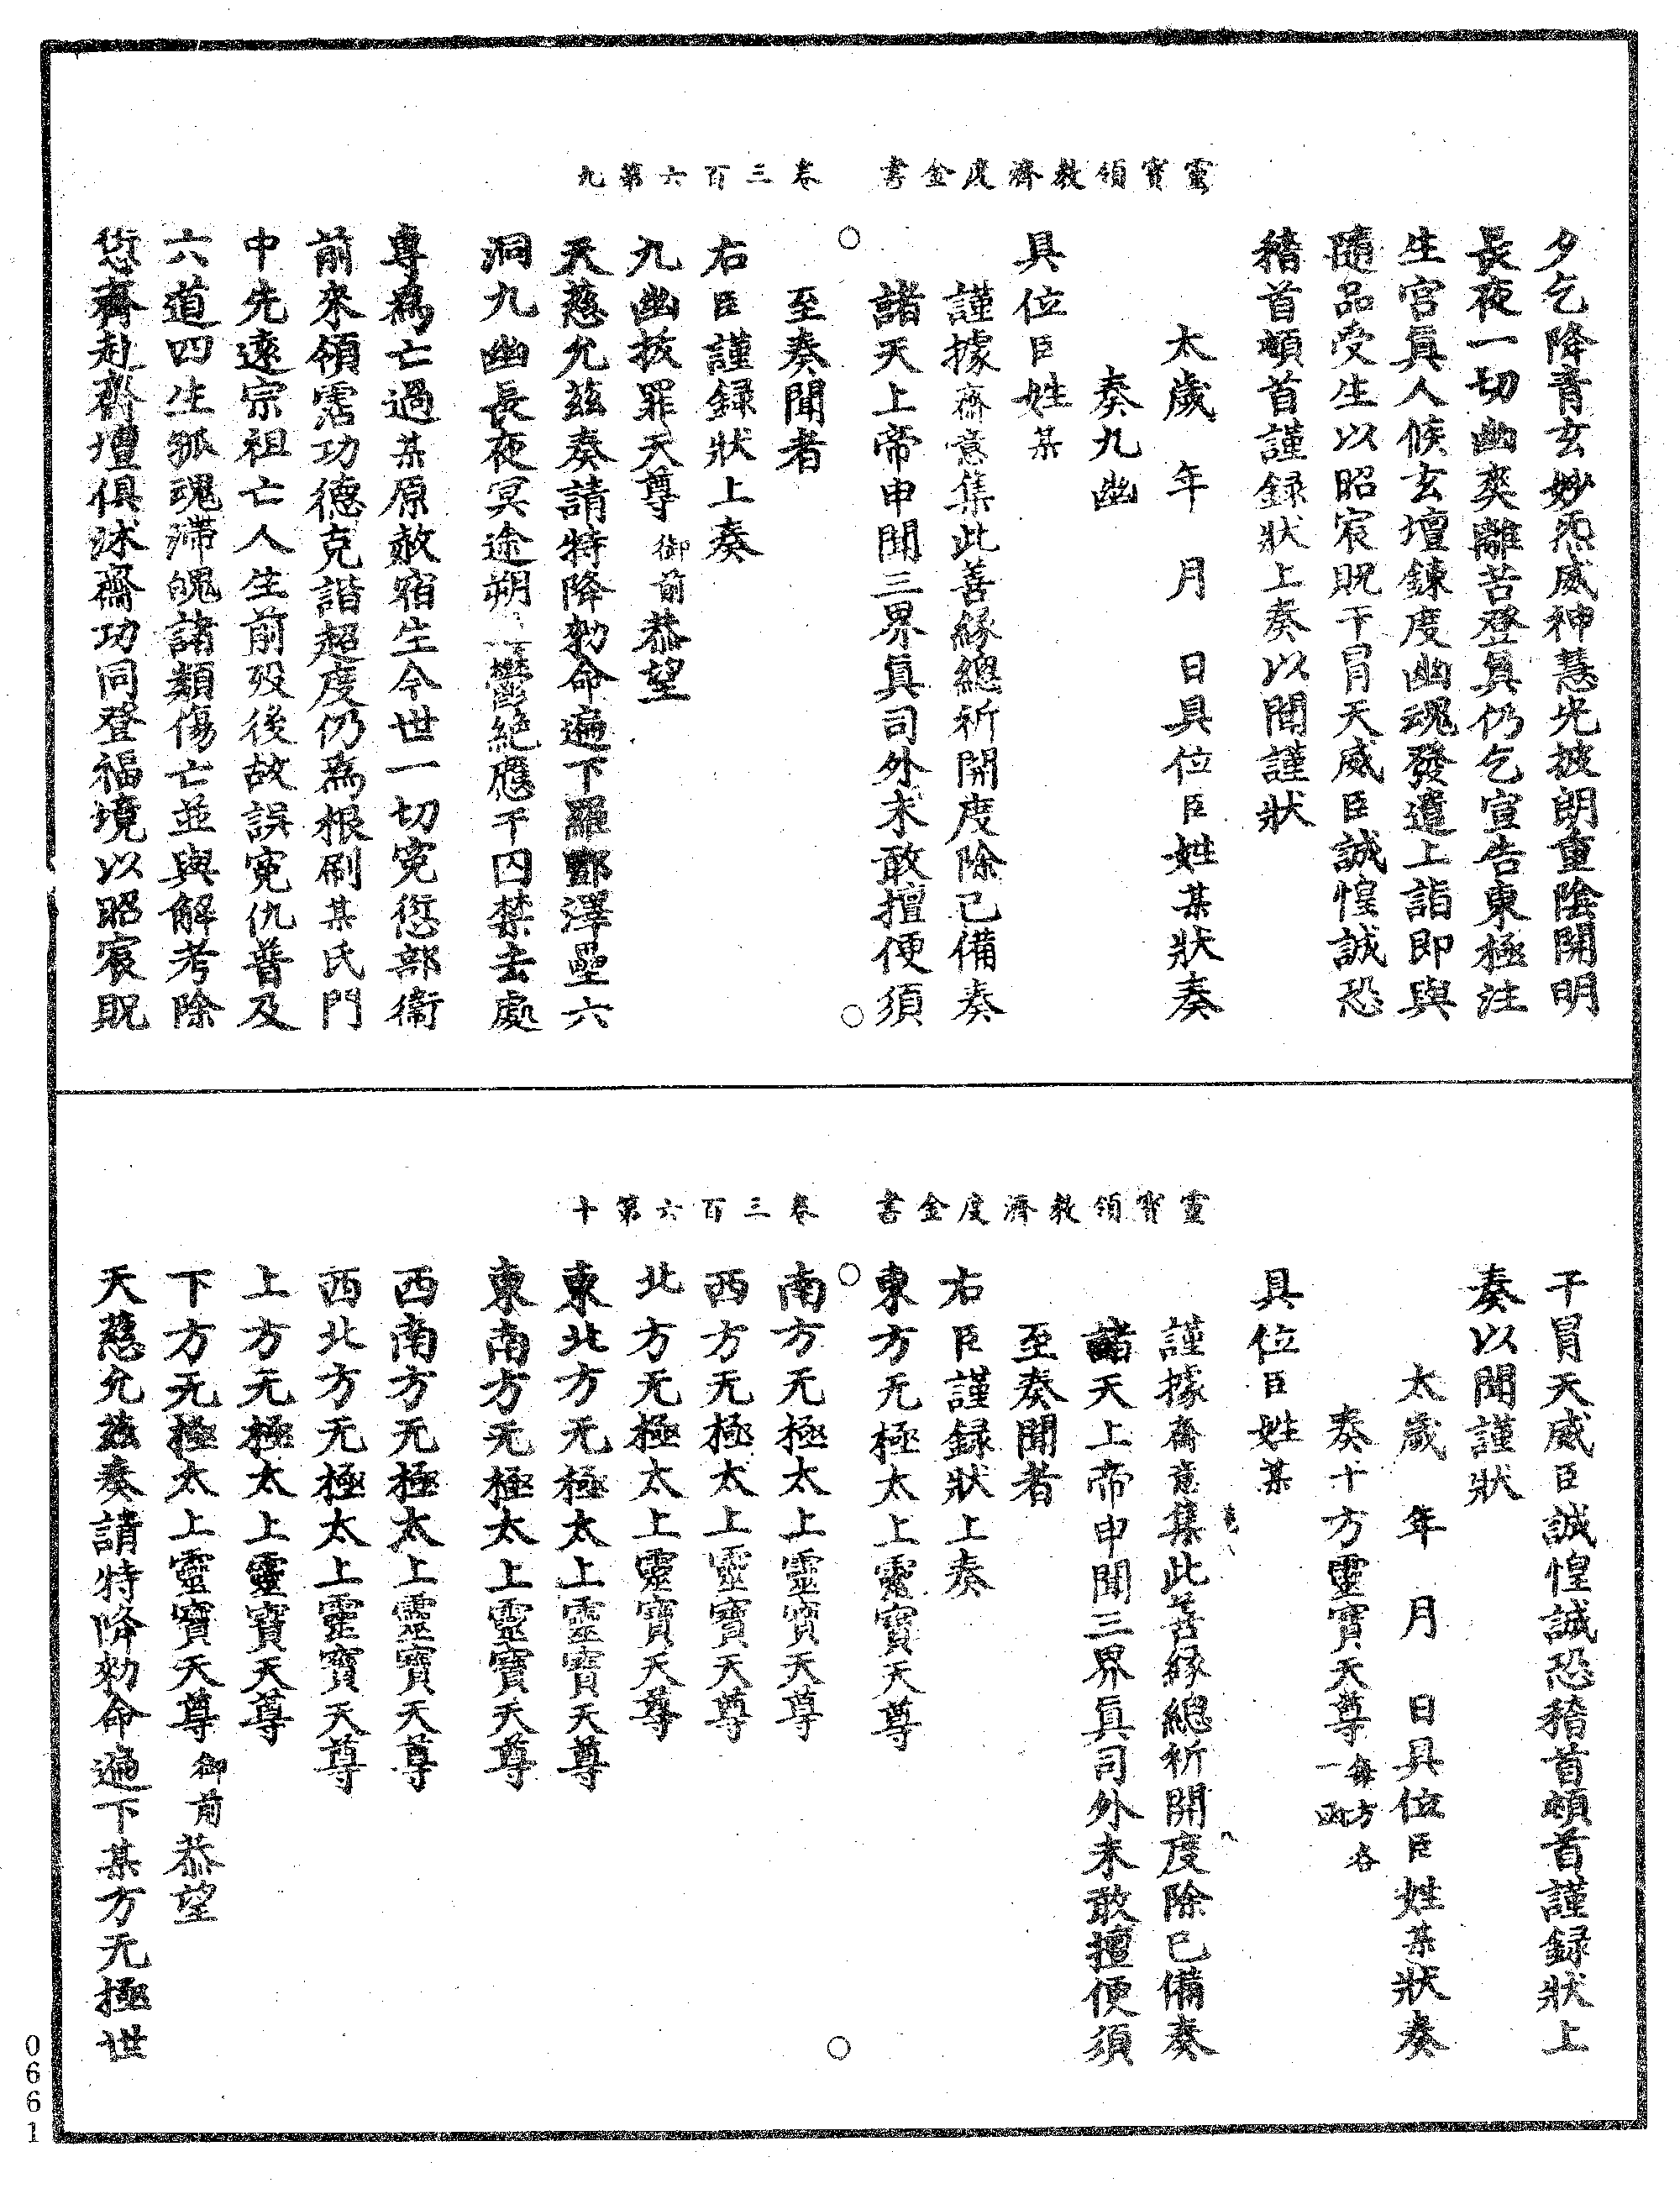 靈寶領教濟度金書　卷三百六第九
夕乞降青玄妙炁威神慧光披朗重陰開明
長夜一切幽爽離苦登真仍乞宣告東極注
生宮真人候玄壇鍊度幽魂發遣上詣即與
隨品受生以昭宸貺干冒天威臣誠惶誠恐
稽首頓首謹録狀上奏以聞謹狀
太歲　年　月　日具位臣姓某狀奏
奏九幽
具位臣姓某
謹據齋意集此善緣總祈開度除已備奏
諸天上帝申聞三界真司外未敢擅便須
至奏聞者
右臣謹録狀上奏
九幽拔罪天尊御前恭望
天慈允茲奏請特降勑命遍下羅酆澤壘六
洞九幽長夜冥途朔鬱絶應干囚禁去處
專為亡過某原赦宿生今世一切寃愆部衛
前來領霑功德克諧超度仍為根刷某氏門
中先遠宗祖亡人生前歿後故誤寃仇普及
六道四生孤魂滯魄諸類傷亡並與解考除
愆齋赴齋壇俱沐齋功同登福境以昭宸貺
靈寶領教濟度金書　卷三百六第十
干冒天威臣誠惶誠恐稽首頓首謹録狀上
奏以聞謹狀
太歲　年　月　日具位臣姓某狀奏
奏十方靈寶天尊每方各一函
具位臣姓某
謹據齋意集此善緣總祈開度除已備奏
諸天上帝申聞三界真司外未敢擅便須
至奏聞者
右臣謹録狀上奏
東方无極太上靈寶天尊
南方无極太上靈寶天尊
西方无極太上靈寶天尊
北方无極太上靈寶天尊
東北方无極太上靈寶天尊
東南方无極太上靈寶天尊
西南方无極太上靈寶天尊
西北方无極太上靈寶天尊
上方无極太上靈寶天尊
下方无極太上靈寶天尊御前恭望
天慈允茲奏請特降勑命遍下某方无極世
0661